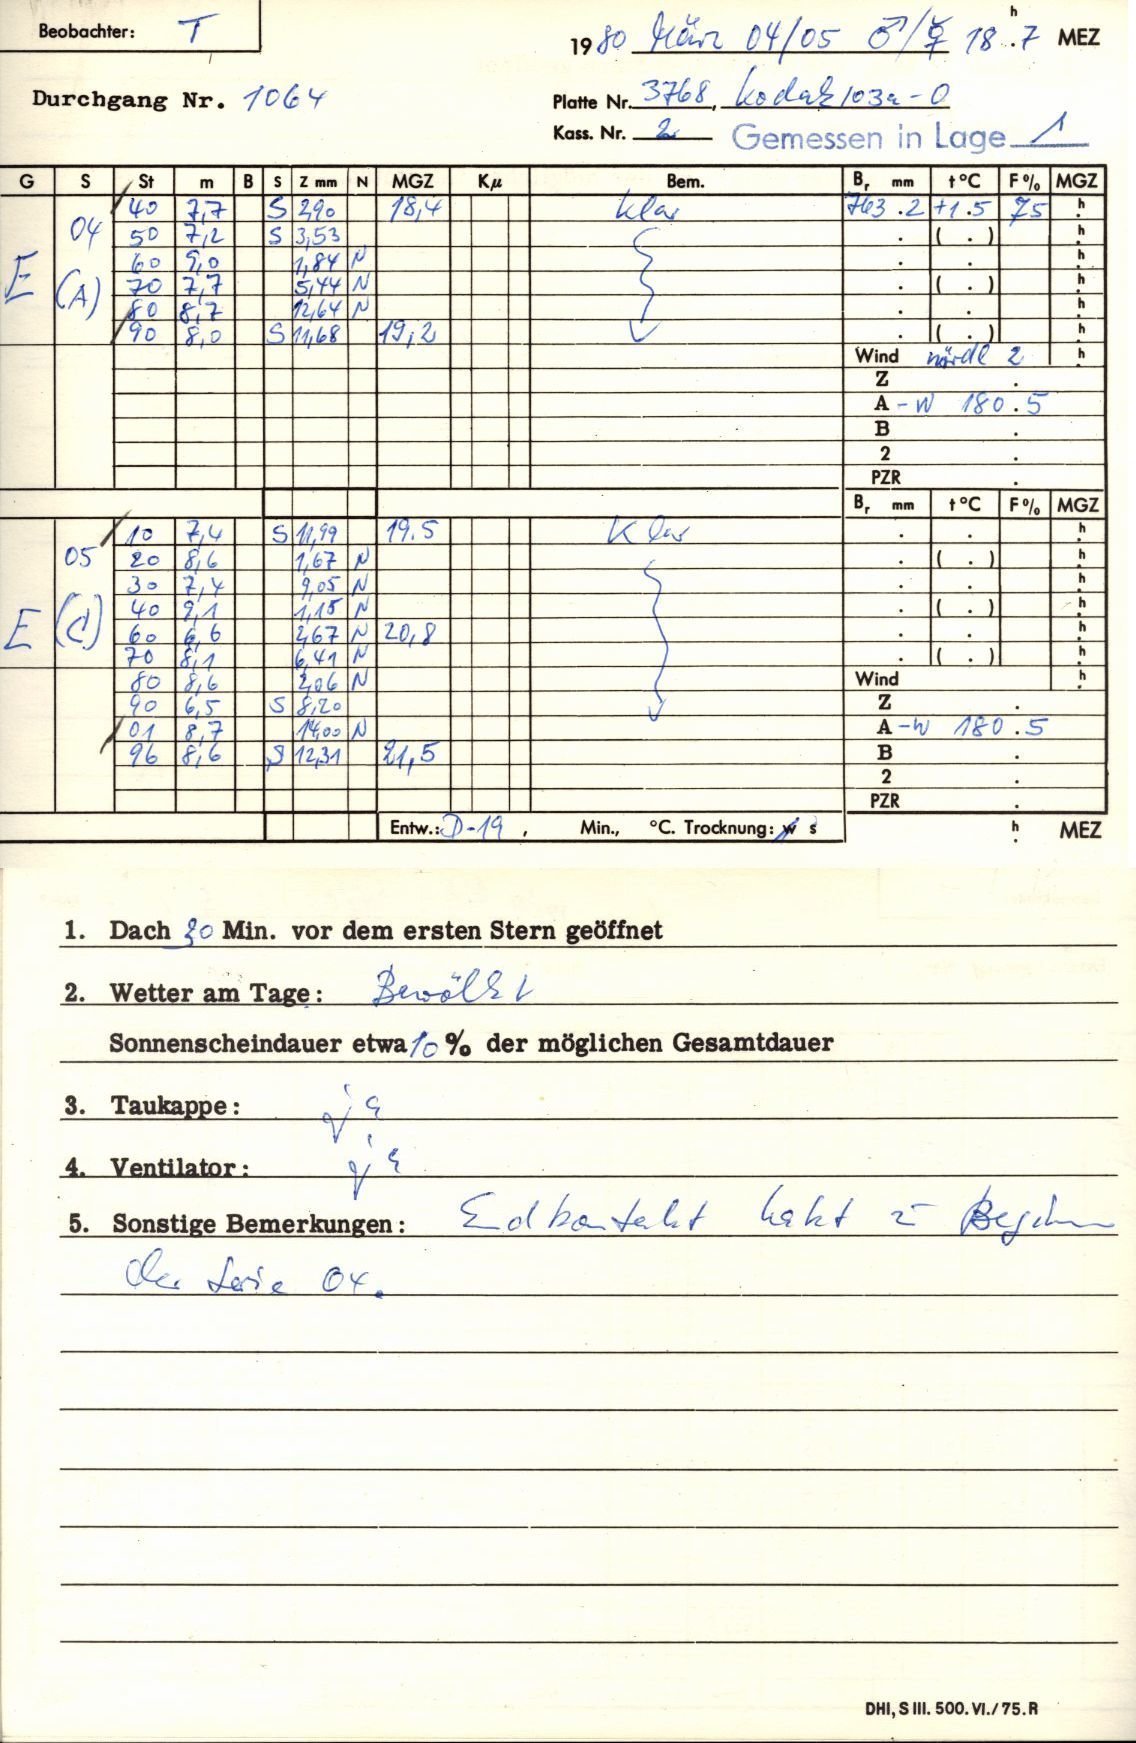 Beobachter: T
1980 März 04/05 ♂/☿ 18h.7 MEZ
Durchgang Nr. 1064
Platte Nr. 3768, Kodak 103a-O
Kass. Nr. 2 Gemessen in Lage 1
G S St m B S Z mm N MGZ Kμ Bem. Br mm t°C F% MGZ
E 04 (A) 40 7,7 S 2,90 18,4 klar 763.2 +1.5 75 h
50 7,2 S 3,53 ( . ) h
60 9,0 1,84 N . h
70 7,7 5,44 N ( . ) h
80 8,7 12,64 N . h
90 8,0 S 11,68 19,2 ( . ) h
Wind nördl 2 h
Z .
A -W 180.5
B .
2 .
PZR .
Br mm t°C F% MGZ
E 05 (C) 10 7,4 S 11,99 19.5 Klar . h
20 8,6 1,67 N ( . ) h
30 7,4 9,05 N . h
40 9,1 1,15 N ( . ) h
60 6,6 2,67 N 20,8 . h
70 8,1 6,41 N ( . ) h
80 8,6 2,06 N Wind h
90 6,5 S 8,20 Z .
01 8,7 14,00 N A -W 180.5
96 8,6 S 12,31 21,5 B .
2 .
PZR .
Entw.: D-19, Min., °C. Trocknung: w s h MEZ
1. Dach 30 Min. vor dem ersten Stern geöffnet
2. Wetter am Tage: Bewölkt
Sonnenscheindauer etwa 10 % der möglichen Gesamtdauer
3. Taukappe: ja
4. Ventilator: ja
5. Sonstige Bemerkungen: Endkontakt hakt z Beginn
der Serie 04.
DHI, S III. 500. VI./75. R